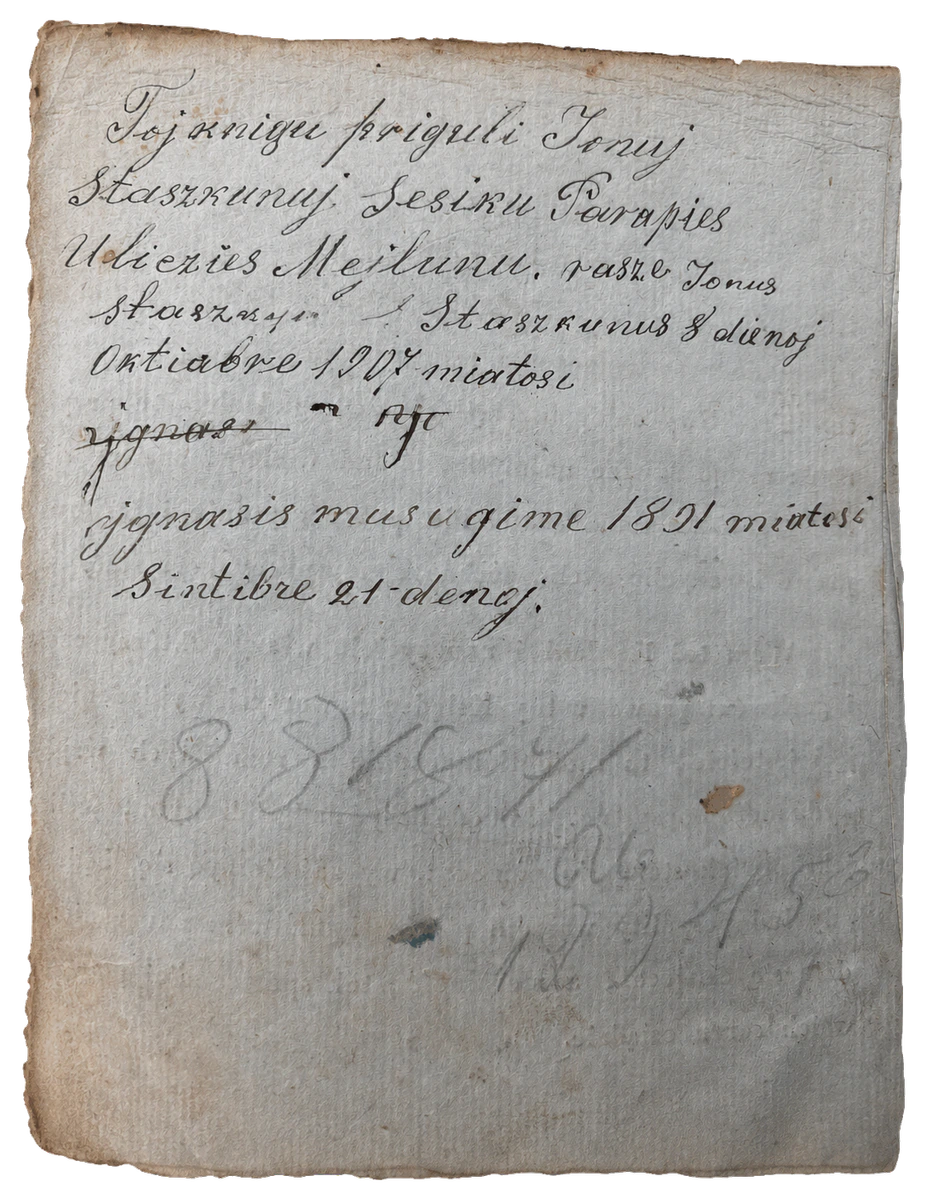 Toj knigu priguli Jonuj
Staszkunuj. Sesiku Parapies
Uliczies Mejlunu. rasze Jonus
Staszkunus 8 dienoj
Oktiabre 1907 miatosi
jgnasis musu gime 1891 miatosi
Sintibre 21 denoj.
8 8 1871